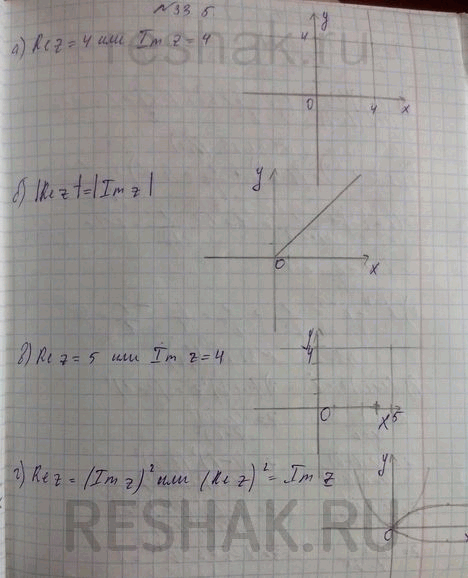 №33.5
а) Re z = 4 или Im z = 4
reshak.ru
y
4
0
4
x
б) |Re z| = |Im z|
y
0
x
в) Re z = 5 или Im z = 4
y
4
0
x
5
г) Re z = (Im z)² или (Re z)² = Im z
y
0
RESHAK.RU